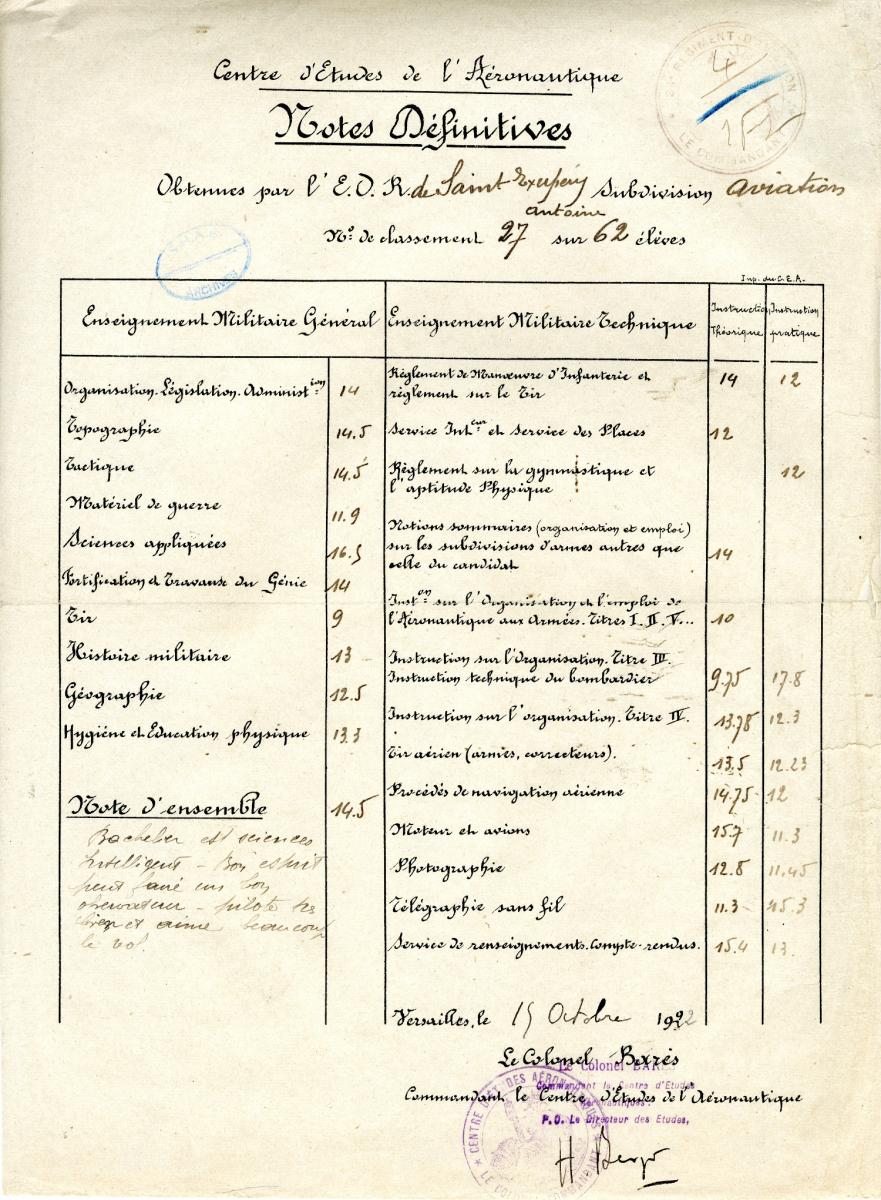 Centre d'Etudes de l'Aéronautique
Notes Définitives
Obtenues par l'E.O.R. de Saint Exupéry Antoine Subdivision aviation
N° de classement 27 sur 62 élèves
4
ARCHIVES
LE COMMANDANT
Imp. du C.E.A.
Enseignement Militaire Général
Organisation. Législation. Administion 14
Topographie 14.5
Tactique 14.5
Matériel de guerre 11.9
Sciences appliquées 16.5
Fortification et Travaux du Génie 14
Tir 9
Histoire militaire 13
Géographie 12.5
Hygiène et Education physique 13.3
Note d'ensemble 14.5
Bachelier est sciences
Intelligent - Bon esprit
peut faire un bon
observateur - pilote très
bien et aime beaucoup
le vol.
Enseignement Militaire Technique Instruction Théorique Instruction pratique
Règlement de Manœuvre d'Infanterie et
règlement sur le Tir 14 12
Service Inteur et Service des Places 12
Règlement sur la gymnastique et
l'aptitude Physique 12
Notions sommaires (organisation et emploi)
sur les subdivisions d'armes autres que
celle du candidat 14
Inston sur l'Organisation et l'emploi de
l'Aéronautique aux Armées. Titres I. II. V... 10
Instruction sur l'Organisation. Titre III.
Instruction technique du bombardier 9.75 17.8
Instruction sur l'organisation. Titre IV. 13.78 12.3
Tir aérien (armes, correcteurs). 13.5 12.23
Procédés de navigation aérienne 14.75 12
Moteur et avions 15.7 11.3
Photographie 12.8 11.45
Télégraphie sans fil 11.3 15.3
Service de renseignements. Compte-rendus. 15.4 13.
Versailles, le 15 Octobre 1922
Le Colonel Barès
Le Colonel BARÈS
Commandant le Centre d'Etudes
Commandant le Centre d'Etudes de l'Aéronautique
Aéronautiques.
P.O. Le Directeur des Etudes,